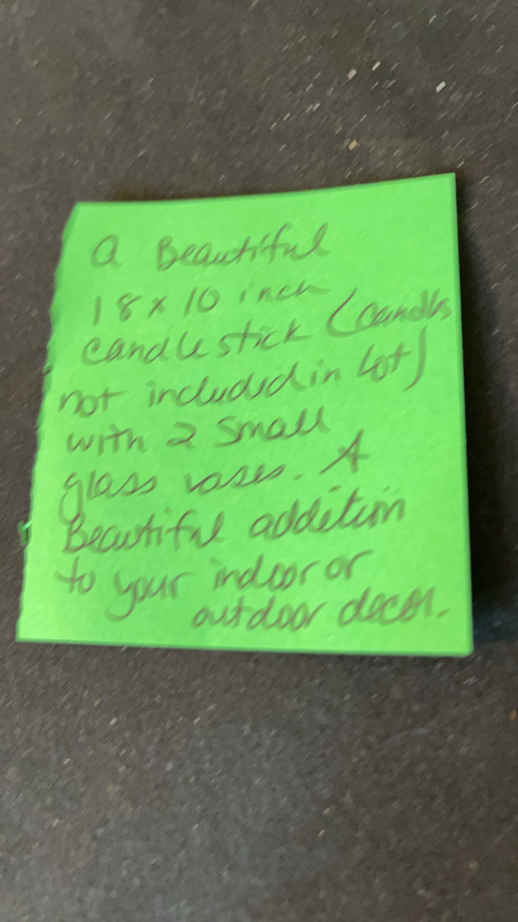 A Beautiful
18 x 10 inch
candle stick (candles
not included in lot)
with 2 small
glass vases. A
Beautiful addition
to your indoor or
outdoor decor.